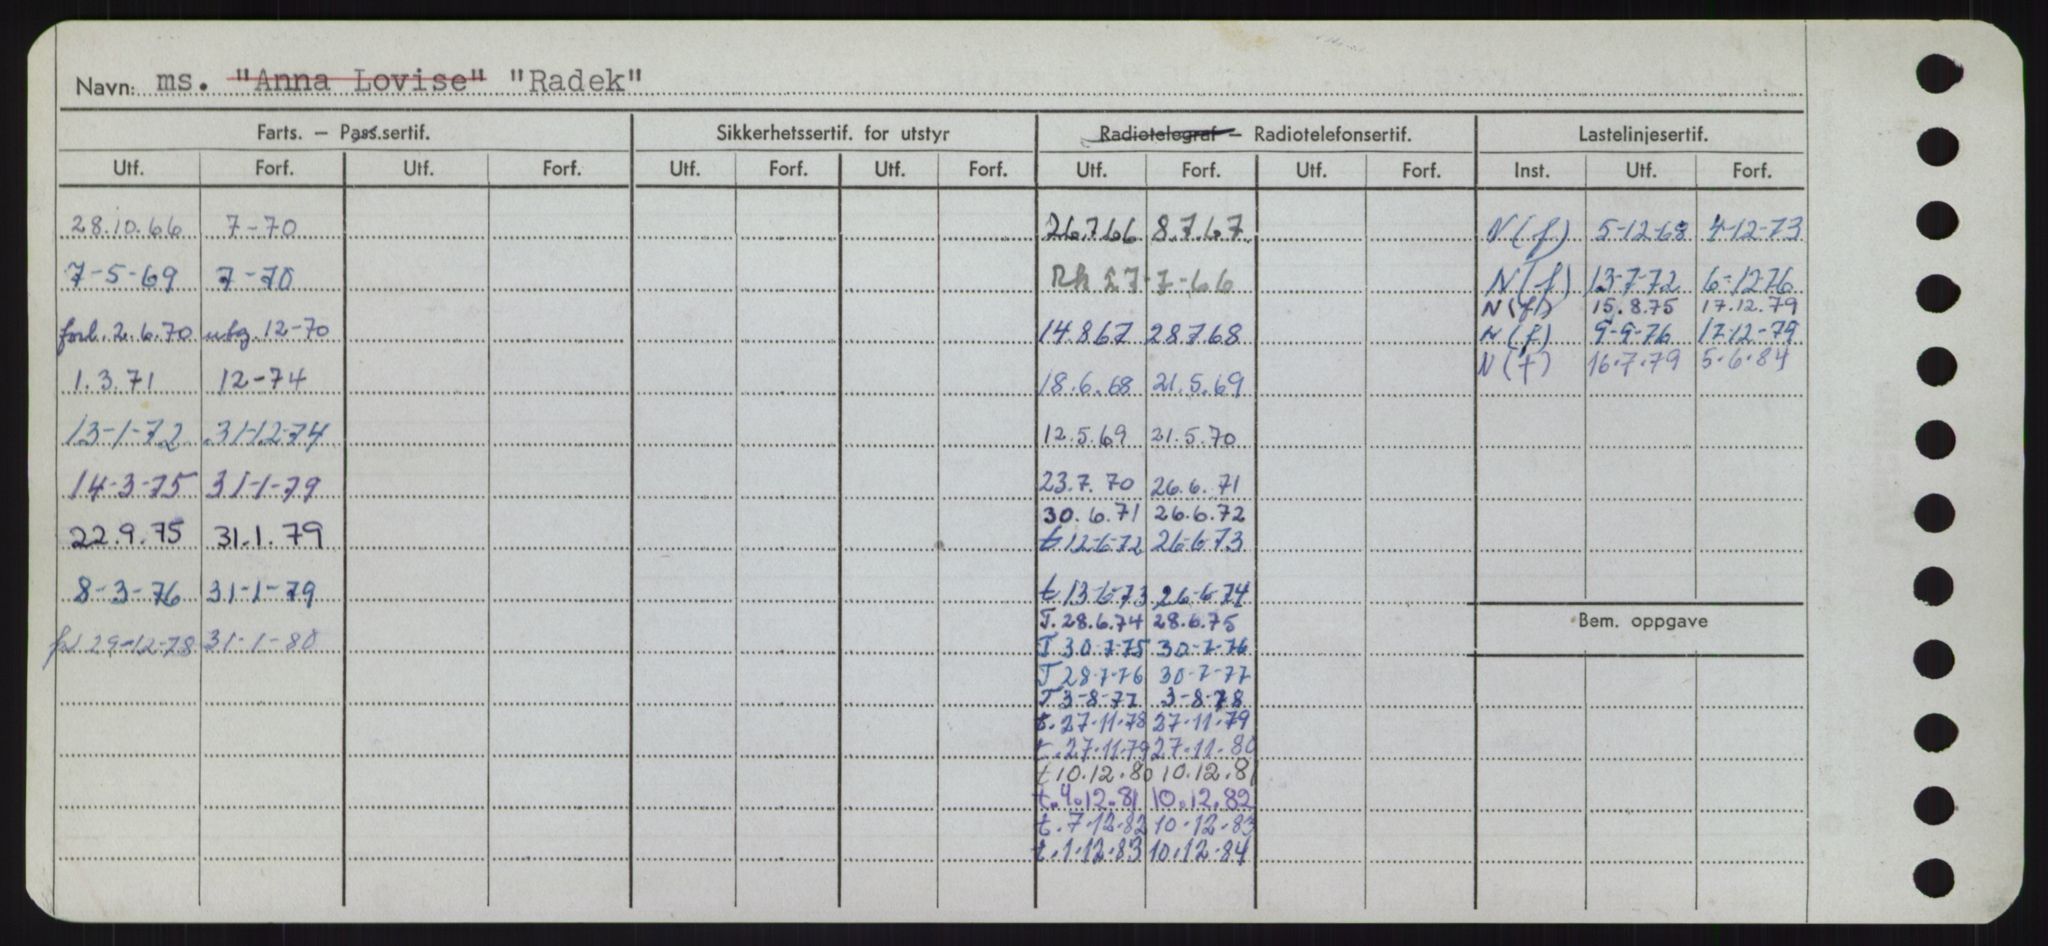 Navn: ms. "Anna Lovise" "Radek"
Farts. – Pass.sertif. Sikkerhetssertif. for utstyr Radiotelegraf – Radiotelefonsertif. Lastelinjesertif.
Utf. Forf. Utf. Forf. Utf. Forf. Utf. Forf. Utf. Forf. Utf. Forf. Inst. Utf. Forf.
28.10.66 7-70 26.7.66 8.7.67 N(f) 5-12-68 4-12-73
7-5-69 7-70 Rk 27-7-66 N(f) 13-7-72 6-12-76
N(f) 15.8.75 17.12.79
forl. 2.6.70 utg. 12-70 14.8.67 28.7.68 N(f) 9-9-76 17-12-79
N(f) 16.7.79 5.6.84
1.3.71 12-74 18.6.68 21.5.69
13-1-72 31-12-74 12.5.69 21.5.70
14-3-75 31-1-79 23.7.70 26.6.71
30.6.71 26.6.72
22.9.75 31.1.79 t 12-6-72 26-6-73
8-3-76 31-1-79 t 13-6-73 26-6-74
T. 28.6.74 28.6.75
29-12-78 31-1-80 T 30-7-75 30-7-76
T 28-7-76 30-7-77
T 3-8-77 3-8-78
t. 27-11-78 27-11-79
t. 27-11-79 27-11-80
t 10.12.80 10.12.81
t. 4.12.81 10.12.82
t. 7.12.82 10.12.83
t. 1.12.83 10.12.84
Bem. oppgave